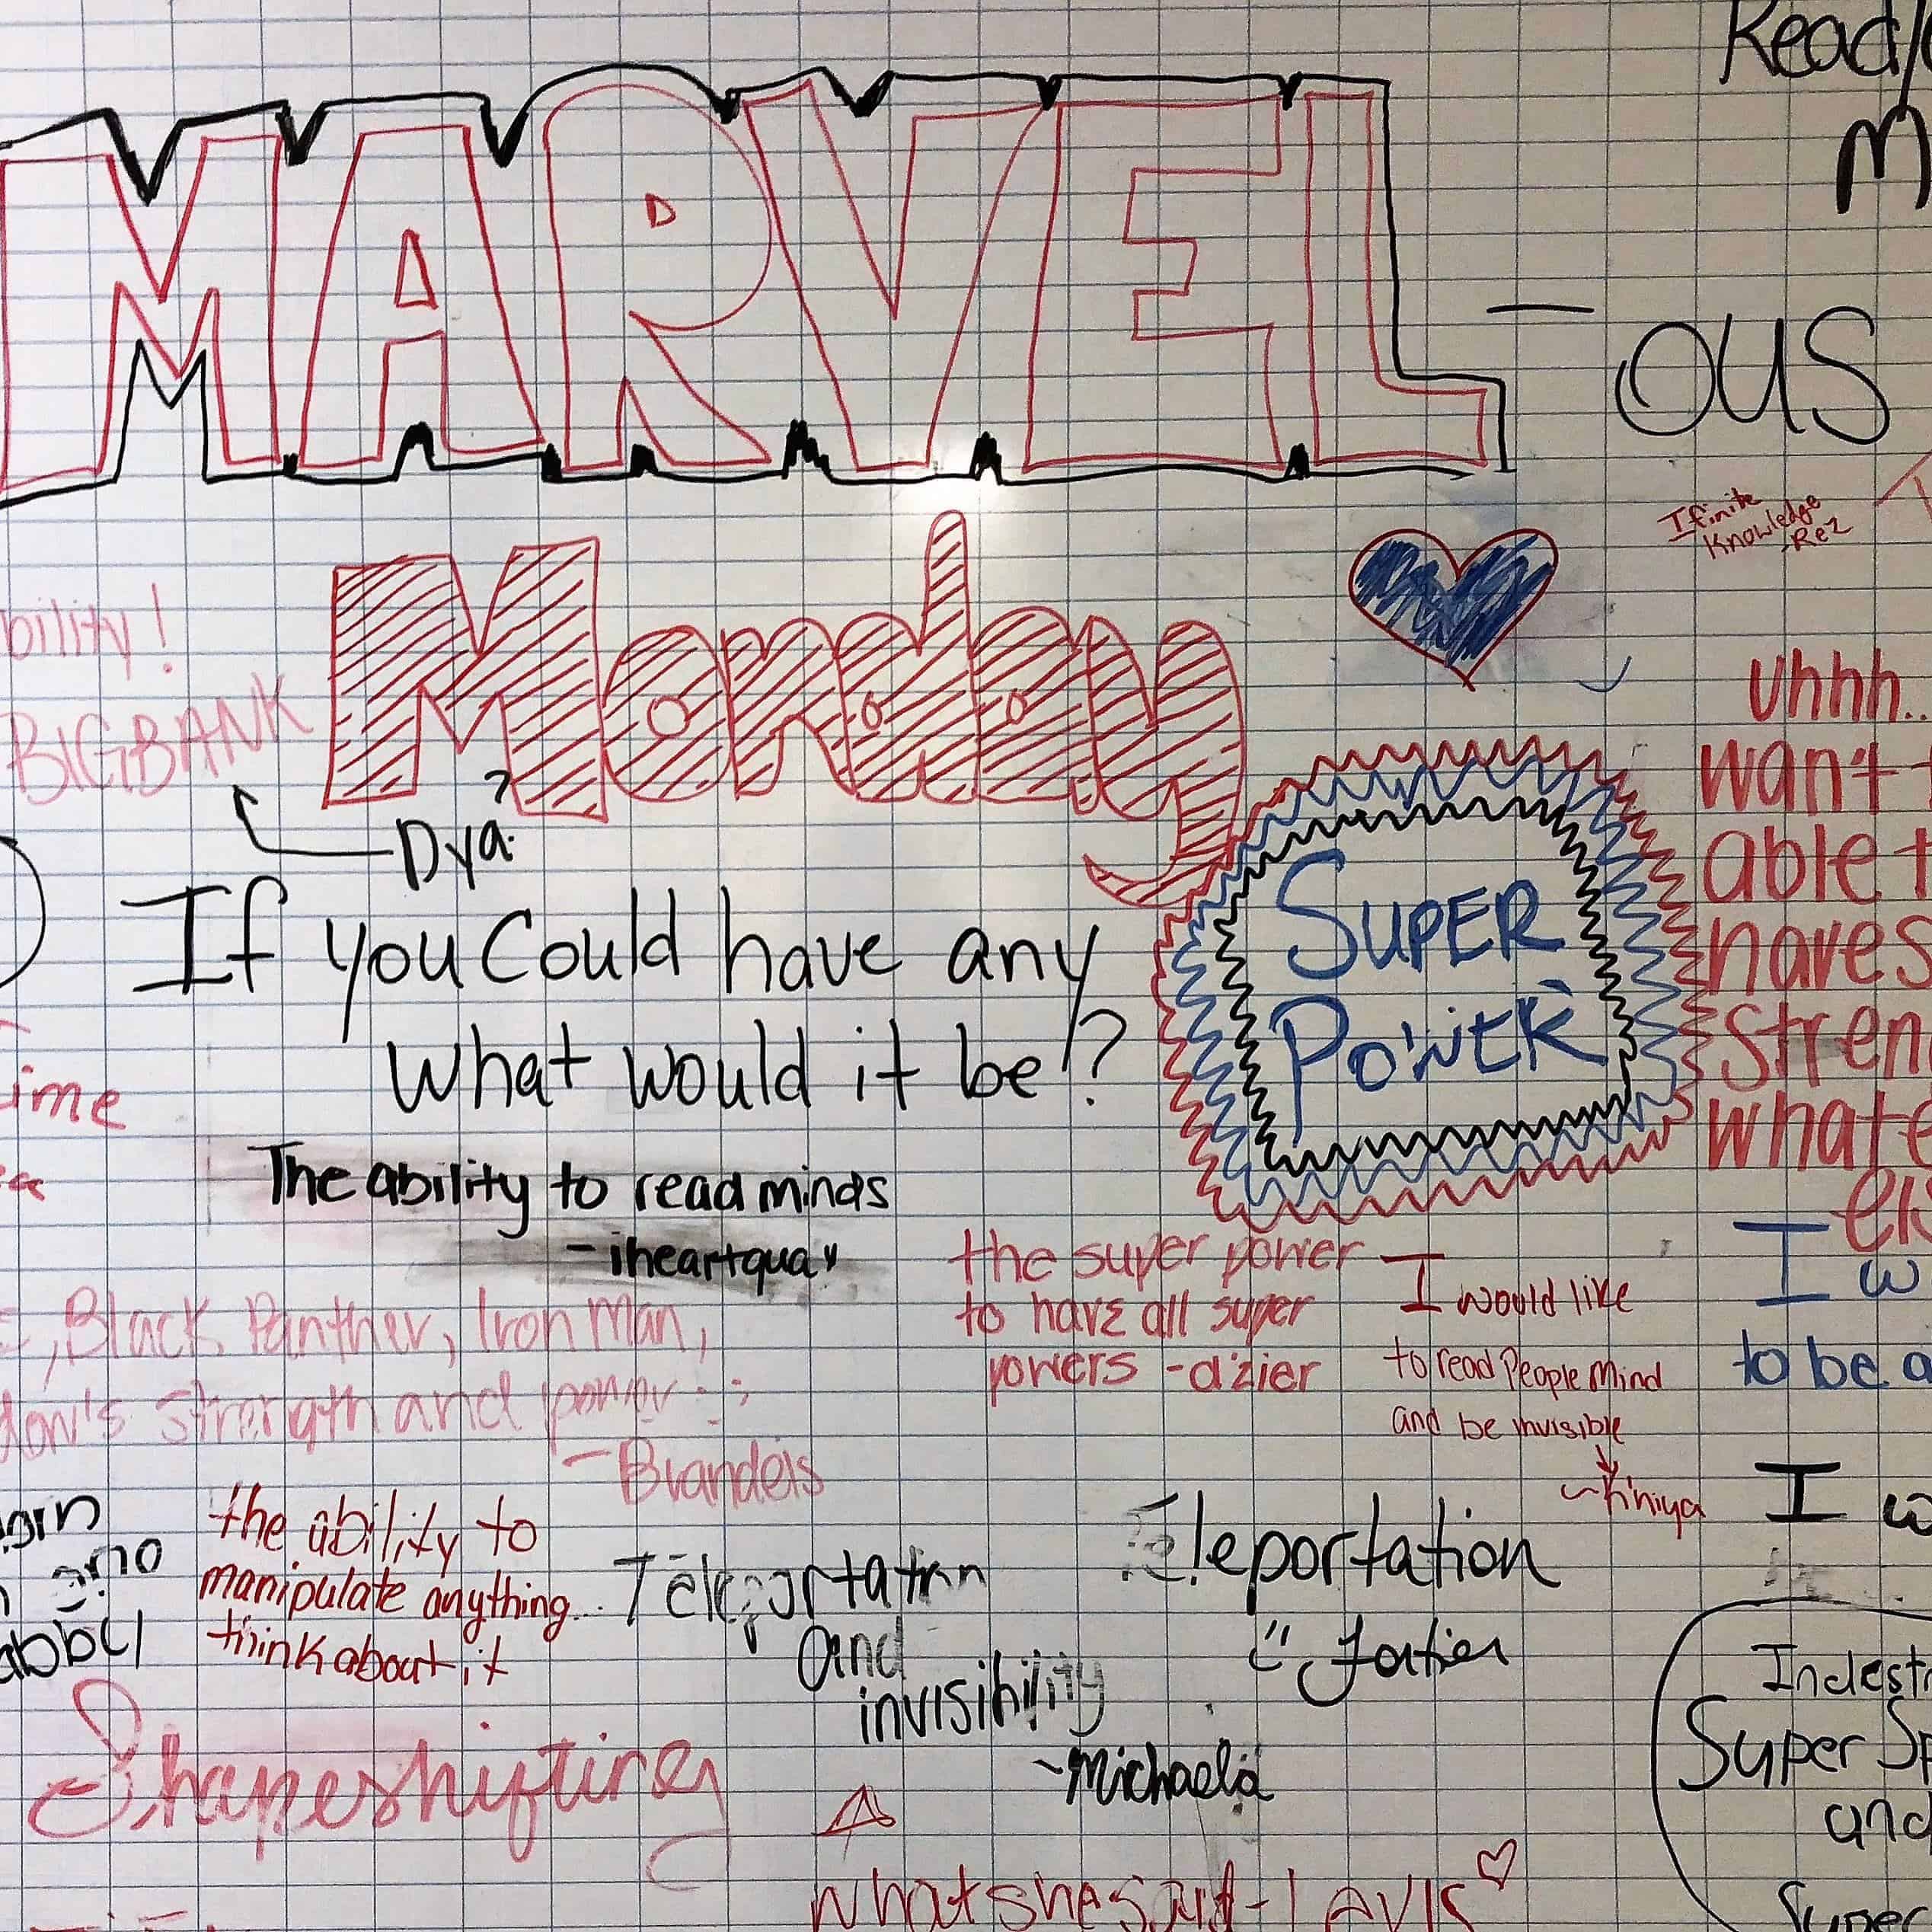 Read/
M
MARVEL
- ous
Ifinite
Knowledge
-Rez
Monday
bility!
BIGBANK
Dya.
?
uhhh..
want
able t
haves
Stren
whate
els
If you Could have any
SUPER
POWER
What would it be!?
ime
The ability to read minds
- iheartquay
the super power
to have all super
powers -dizier
I would like
to read People Mind
and be invisible
~K'niya
I w
to be a
I w
, Black Panther, Iron Man,
dow's strength and power
- Brandeis
the ability to
manipulate anything...
think about it
Teleportation
and
invisibility
~Michaela
Teleportation
Shapeshifting
what she said -
Indestr
Super Sp
and
Super